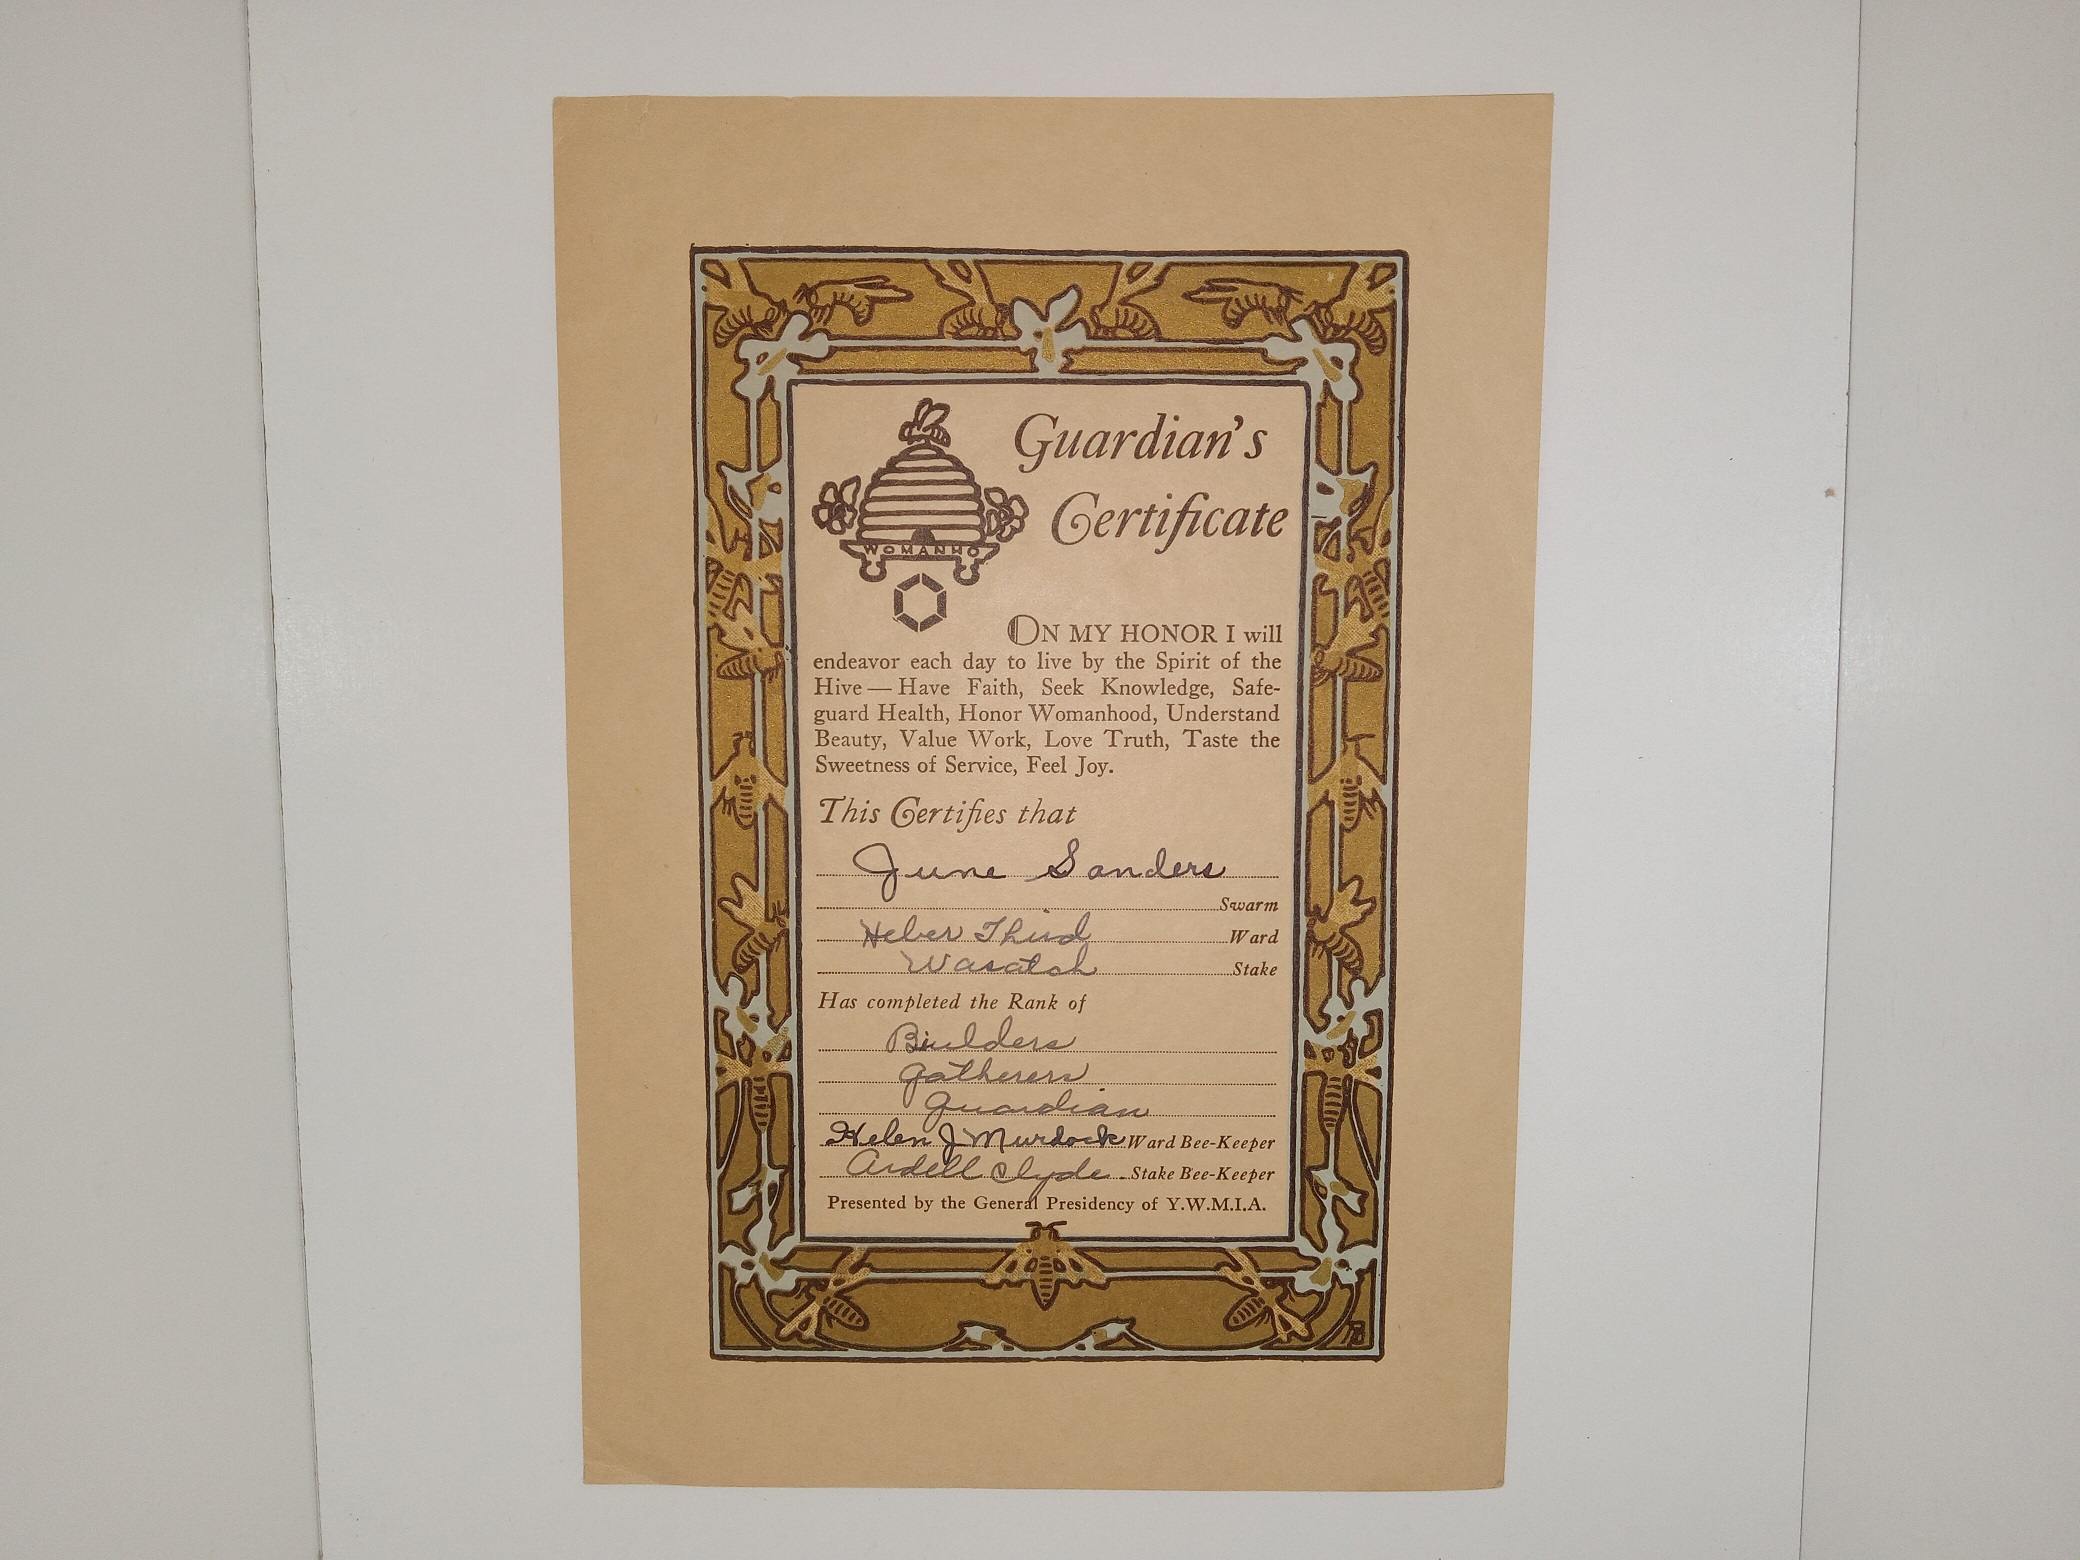 Guardian's
Certificate
WOMANHO
ON MY HONOR I will
endeavor each day to live by the Spirit of the
Hive — Have Faith, Seek Knowledge, Safe-
guard Health, Honor Womanhood, Understand
Beauty, Value Work, Love Truth, Taste the
Sweetness of Service, Feel Joy.
This Certifies that
June Sanders
Swarm
Heber Third Ward
Wasatch Stake
Has completed the Rank of
Builders
Gatherers
Guardian
Helen J Murdock Ward Bee-Keeper
Ardell Clyde Stake Bee-Keeper
Presented by the General Presidency of Y.W.M.I.A.